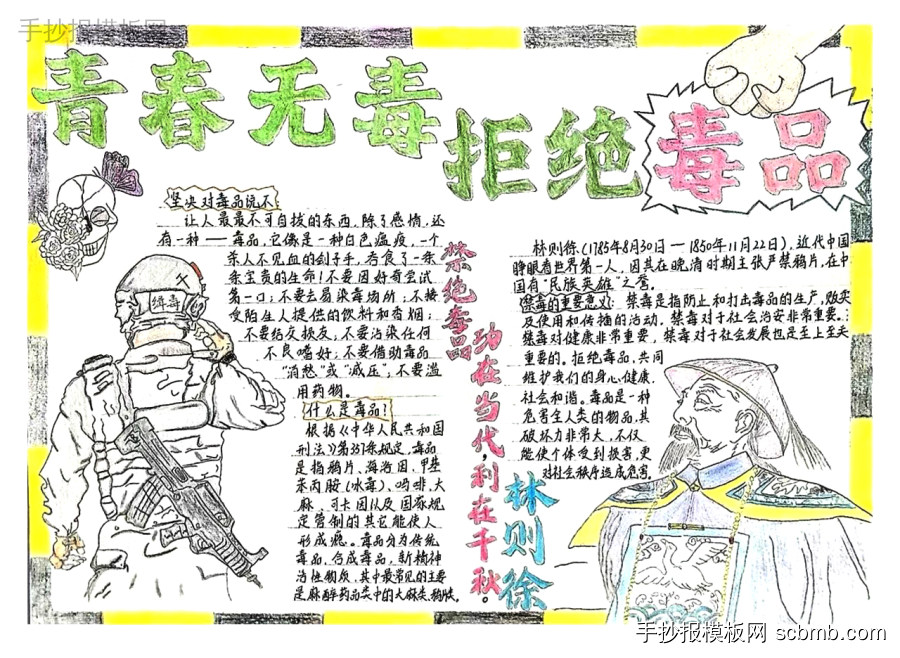 手抄报模板网
青春无毒
拒绝毒品
坚决对毒品说不
让人最最不可自拔的东西,除了感情,还
有一种——毒品,它像是一种白色瘟疫,一个
杀人不见血的刽子手,吞食了一条
条宝贵的生命!不要因好奇尝试
第一口;不要去易染毒场所;不接
受陌生人提供的饮料和香烟;
不要结交损友;不要沾染任何
不良嗜好;不要借助毒品
“消愁”或“减压”;不要滥
用药物。
什么是毒品?
根据《中华人民共和国
刑法》第357条规定,毒品
是指鸦片、海洛因、甲基
苯丙胺(冰毒)、吗啡、大
麻、可卡因以及国家规
定管制的其它能使人
形成瘾。毒品分为传统
毒品、合成毒品,新精神
活性物质,其中最常见的主要
是麻醉药品类中的大麻类物质。
缉毒
禁绝毒品
功在当代,利在千秋。
林则徐(1785年8月30日—1850年11月22日),近代中国
睁眼看世界第一人,因其在晚清时期主张严禁鸦片,在中
国有“民族英雄”之誉。
禁毒的重要意义:禁毒是指防止和打击毒品的生产,贩卖
及使用和传播的活动,禁毒对于社会治安非常重要。
禁毒对健康非常重要,禁毒对于社会发展也是至上至关
重要的。拒绝毒品,共同
维护我们的身心健康,
社会和谐。毒品是一种
危害全人类的物品,其
破坏力非常大,不仅
能使个体受到损害,更
对社会秩序造成危害。
林则徐
手抄报模板网 scbmb.com